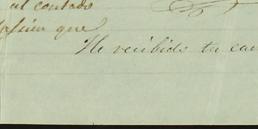 al contado
que
He recibido tu car